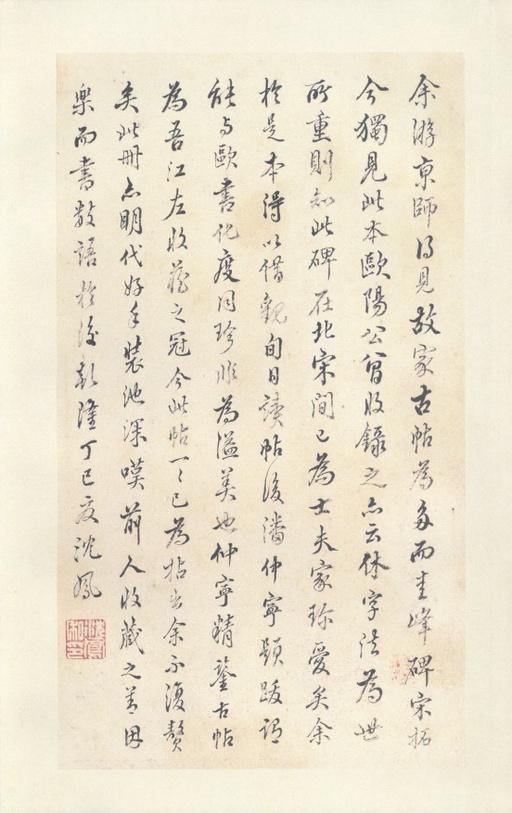 余游京師得見故家古帖為多而圭峰碑宋拓
今獨見此本歐陽公曾收錄之亦云休字法為世
所重則知此碑在北宋間已為士夫家珍愛矣余
於是本得以借觀旬日讀帖後潘仲寧題跋謂
能與歐書化度同珍非為溢美也仲寧精鑒古帖
為吾江左收藏之冠今此帖一一已為拈出余不復贅
矣此冊亦明代好手裝池深嘆前人收藏之善因
樂而書數語於後乾隆丁巳夏沈鳳
沈鳳